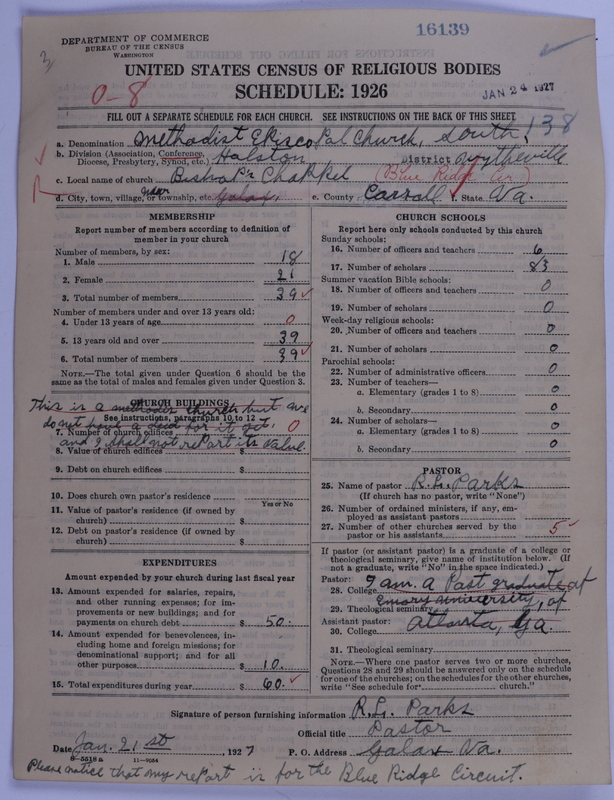 16139
DEPARTMENT OF COMMERCE
BUREAU OF THE CENSUS
WASHINGTON
UNITED STATES CENSUS OF RELIGIOUS BODIES
SCHEDULE: 1926
0-8
JAN 24 1927
FILL OUT A SEPARATE SCHEDULE FOR EACH CHURCH. SEE INSTRUCTIONS ON THE BACK OF THIS SHEET
138
a. Denomination Methodist Episcopal Church, South
b. Division (Association, Conference, Diocese, Presbytery, Synod, etc.) Holston District Wytheville
c. Local name of church Bishop's Chappel (Blue Ridge Cir.)
d. City, town, village, or township, etc. near Galax, e. County Carroll f. State Va.
MEMBERSHIP
Report number of members according to definition of
member in your church
Number of members, by sex:
1. Male 18
2. Female 21
3. Total number of members 39
Number of members under and over 13 years old:
4. Under 13 years of age 0
5. 13 years old and over 39
6. Total number of members 39
NOTE.—The total given under Question 6 should be
the same as the total of males and females given under Question 3.
CHURCH BUILDINGS
This is a methodist church but we
See instructions, paragraphs 10 to 12
do not have a deed for it yet,
7. Number of church edifices 0
and I shall not report its value.
8. Value of church edifices $
9. Debt on church edifices $
10. Does church own pastor's residence
Yes or No
11. Value of pastor's residence (if owned by
church) $
12. Debt on pastor's residence (if owned by
church) $
EXPENDITURES
Amount expended by your church during last fiscal year
13. Amount expended for salaries, repairs,
and other running expenses; for im-
provements or new buildings; and for
payments on church debt $ 50.
14. Amount expended for benevolences, in-
cluding home and foreign missions; for
denominational support; and for all
other purposes $ 10.
15. Total expenditures during year $ 60.
CHURCH SCHOOLS
Report here only schools conducted by this church
Sunday schools:
16. Number of officers and teachers 6
17. Number of scholars 83
Summer vacation Bible schools:
18. Number of officers and teachers 0
19. Number of scholars 0
Week-day religious schools:
20. Number of officers and teachers 0
21. Number of scholars 0
Parochial schools:
22. Number of administrative officers 0
23. Number of teachers—
a. Elementary (grades 1 to 8) 0
b. Secondary 0
24. Number of scholars—
a. Elementary (grades 1 to 8) 0
b. Secondary 0
PASTOR
25. Name of pastor R. L. Parks
(If church has no pastor, write "None")
26. Number of ordained ministers, if any, em-
ployed as assistant pastors
27. Number of other churches served by the
pastor or his assistants 5
If pastor (or assistant pastor) is a graduate of a college or
theological seminary, give name of institution below. (If
not a graduate, write "No" in the space indicated.)
Pastor: I am a Past graduate of
28. College
Emory university, of
29. Theological seminary
Assistant pastor: Atlanta, Ga.
30. College
31. Theological seminary
NOTE.—Where one pastor serves two or more churches,
Questions 28 and 29 should be answered only on the schedule
for one of the churches; on the schedules for the other churches,
write "See schedule for church."
Signature of person furnishing information R. L. Parks
Official title Pastor
Date Jan. 21st, 1927 P. O. Address Galax Va.
8-5518a 11-9054
Please notice that my report is for the Blue Ridge Circuit.